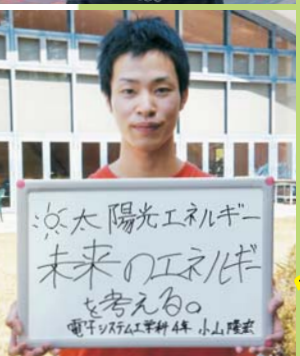 太陽光エネルギー
未来のエネルギー
を考える。
電子システム工学科4年 小山隆宏